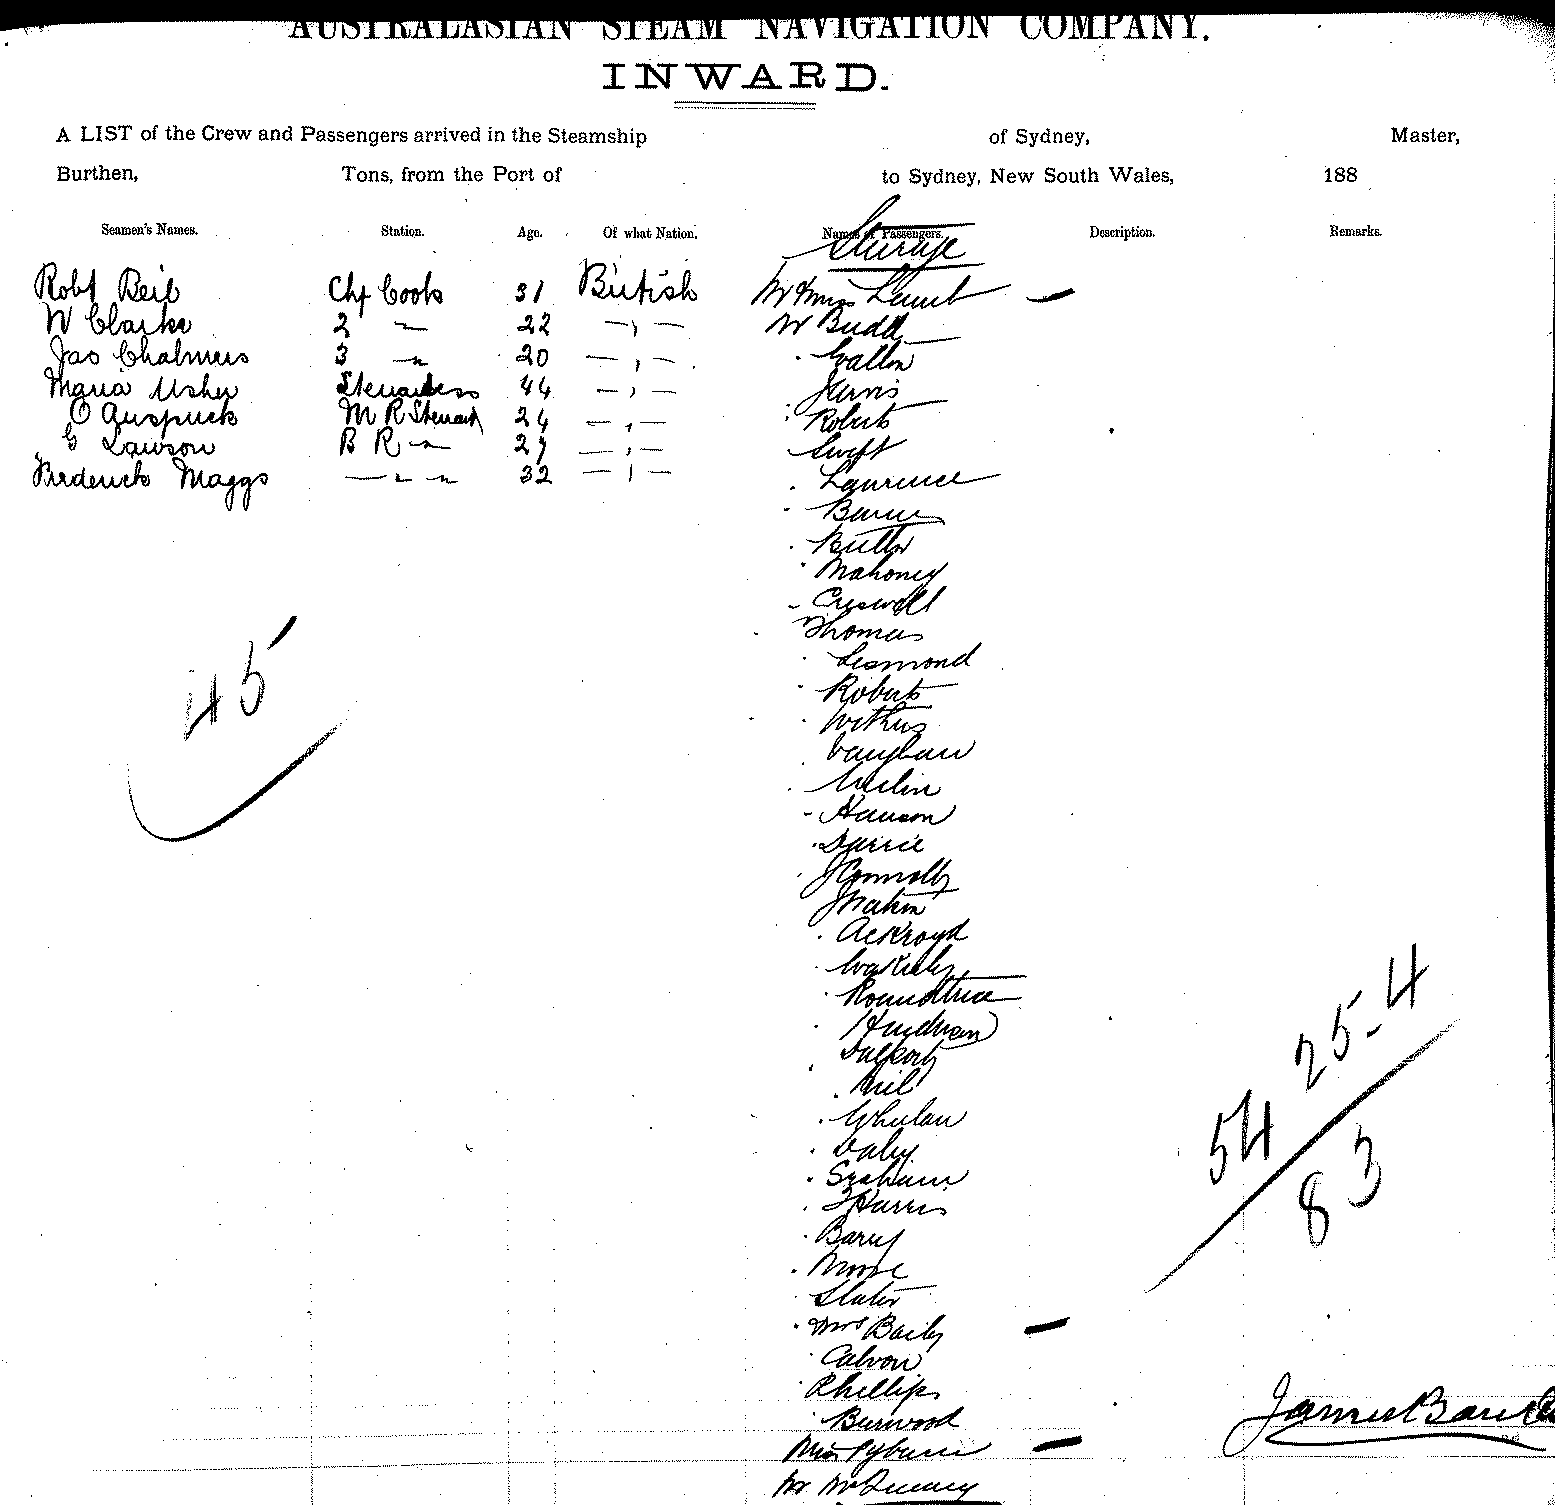 AUSTRALASIAN STEAM NAVIGATION COMPANY.
INWARD.
A LIST of the Crew and Passengers arrived in the Steamship of Sydney, Master,
Burthen, Tons, from the Port of to Sydney, New South Wales, 188
Seamen's Names. Station. Age. Of what Nation. Names of Passengers. Description. Remarks.
Steerage
Robt Chf Cook 31 British
W Clarke 2 " 22 — , —
Jas Chalmers 3 " 20 — , —
Maria Usher Stewardess 44 — , —
O M R Steward 24 — , —
G Lawson B R " 27 — , —
Frederick Maggs — " " 32 — , —
Mr & Mrs —
Mr Budd
Walton
Jarvis
Roberts
Swift
Laurence
Butler
Mahoney
Creswell
Thomas
Desmond
Roberts
Withers
Vaughan
Hanson
Darrie
J Connolly
J Watson
Ackroyd
Wakely
Roundtree
Neil
Whelan
Daley
Graham
Harris
Barry
Moore
Slater
Mrs Baily —
Calvon
Phillips
Burwood
Miss Pyburn —
Mr
45
25-4
54
83
James